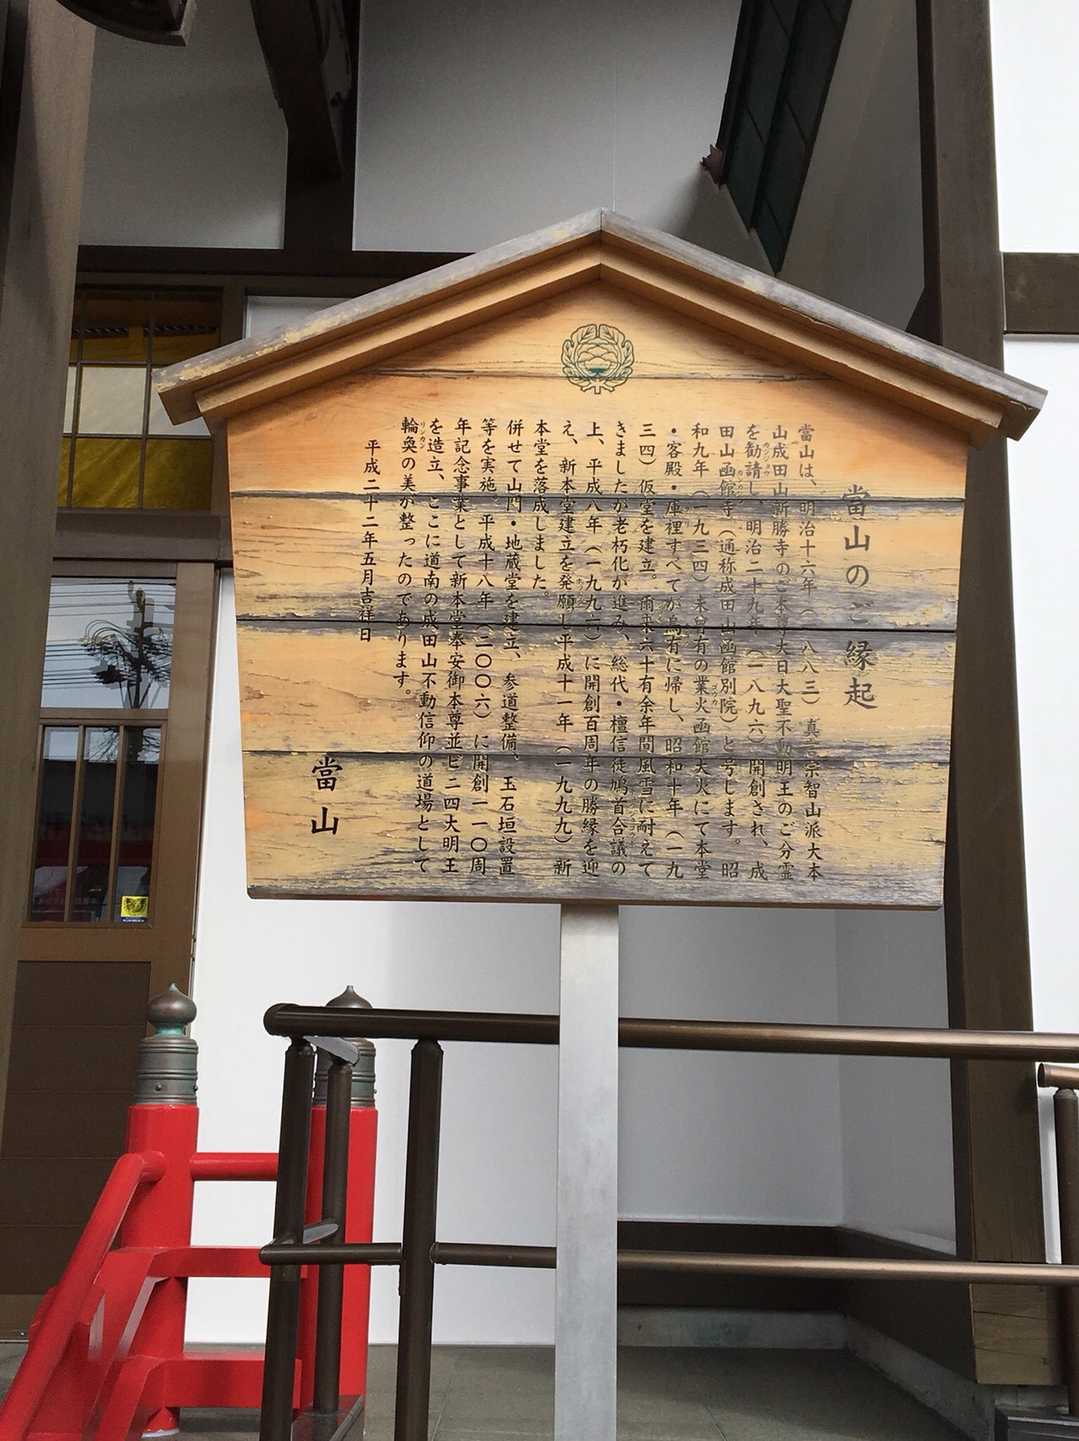 當山のご縁起
當山は、明治十六年(一八八三)真言宗智山派大本
山成田山新勝寺のご本尊大日大聖不動明王のご分霊
を勧請し、明治二十九年(一八九六)開創され、成
田山函館寺(通称成田山函館別院)と号します。昭
和九年(一九三四)未曾有の業火函館大火にて本堂
・客殿・庫裡すべてが烏有に帰し、昭和十年(一九
三四)仮堂を建立。爾来六十有余年間風雪に耐えて
きましたが老朽化が進み、総代・檀信徒鳩首合議の
上、平成八年(一九九六)に開創百周年の勝縁を迎
え、新本堂建立を発願し平成十一年(一九九九)新
本堂を落成しました。
併せて山門・地蔵堂を建立、参道整備、玉石垣設置
等を実施。平成十八年(二〇〇六)に開創一一〇周
年記念事業として新本堂奉安御本尊並ビニ四大明王
を造立、ここに道南の成田山不動信仰の道場として
輪奐の美が整ったのであります。
平成二十二年五月吉祥日
當山